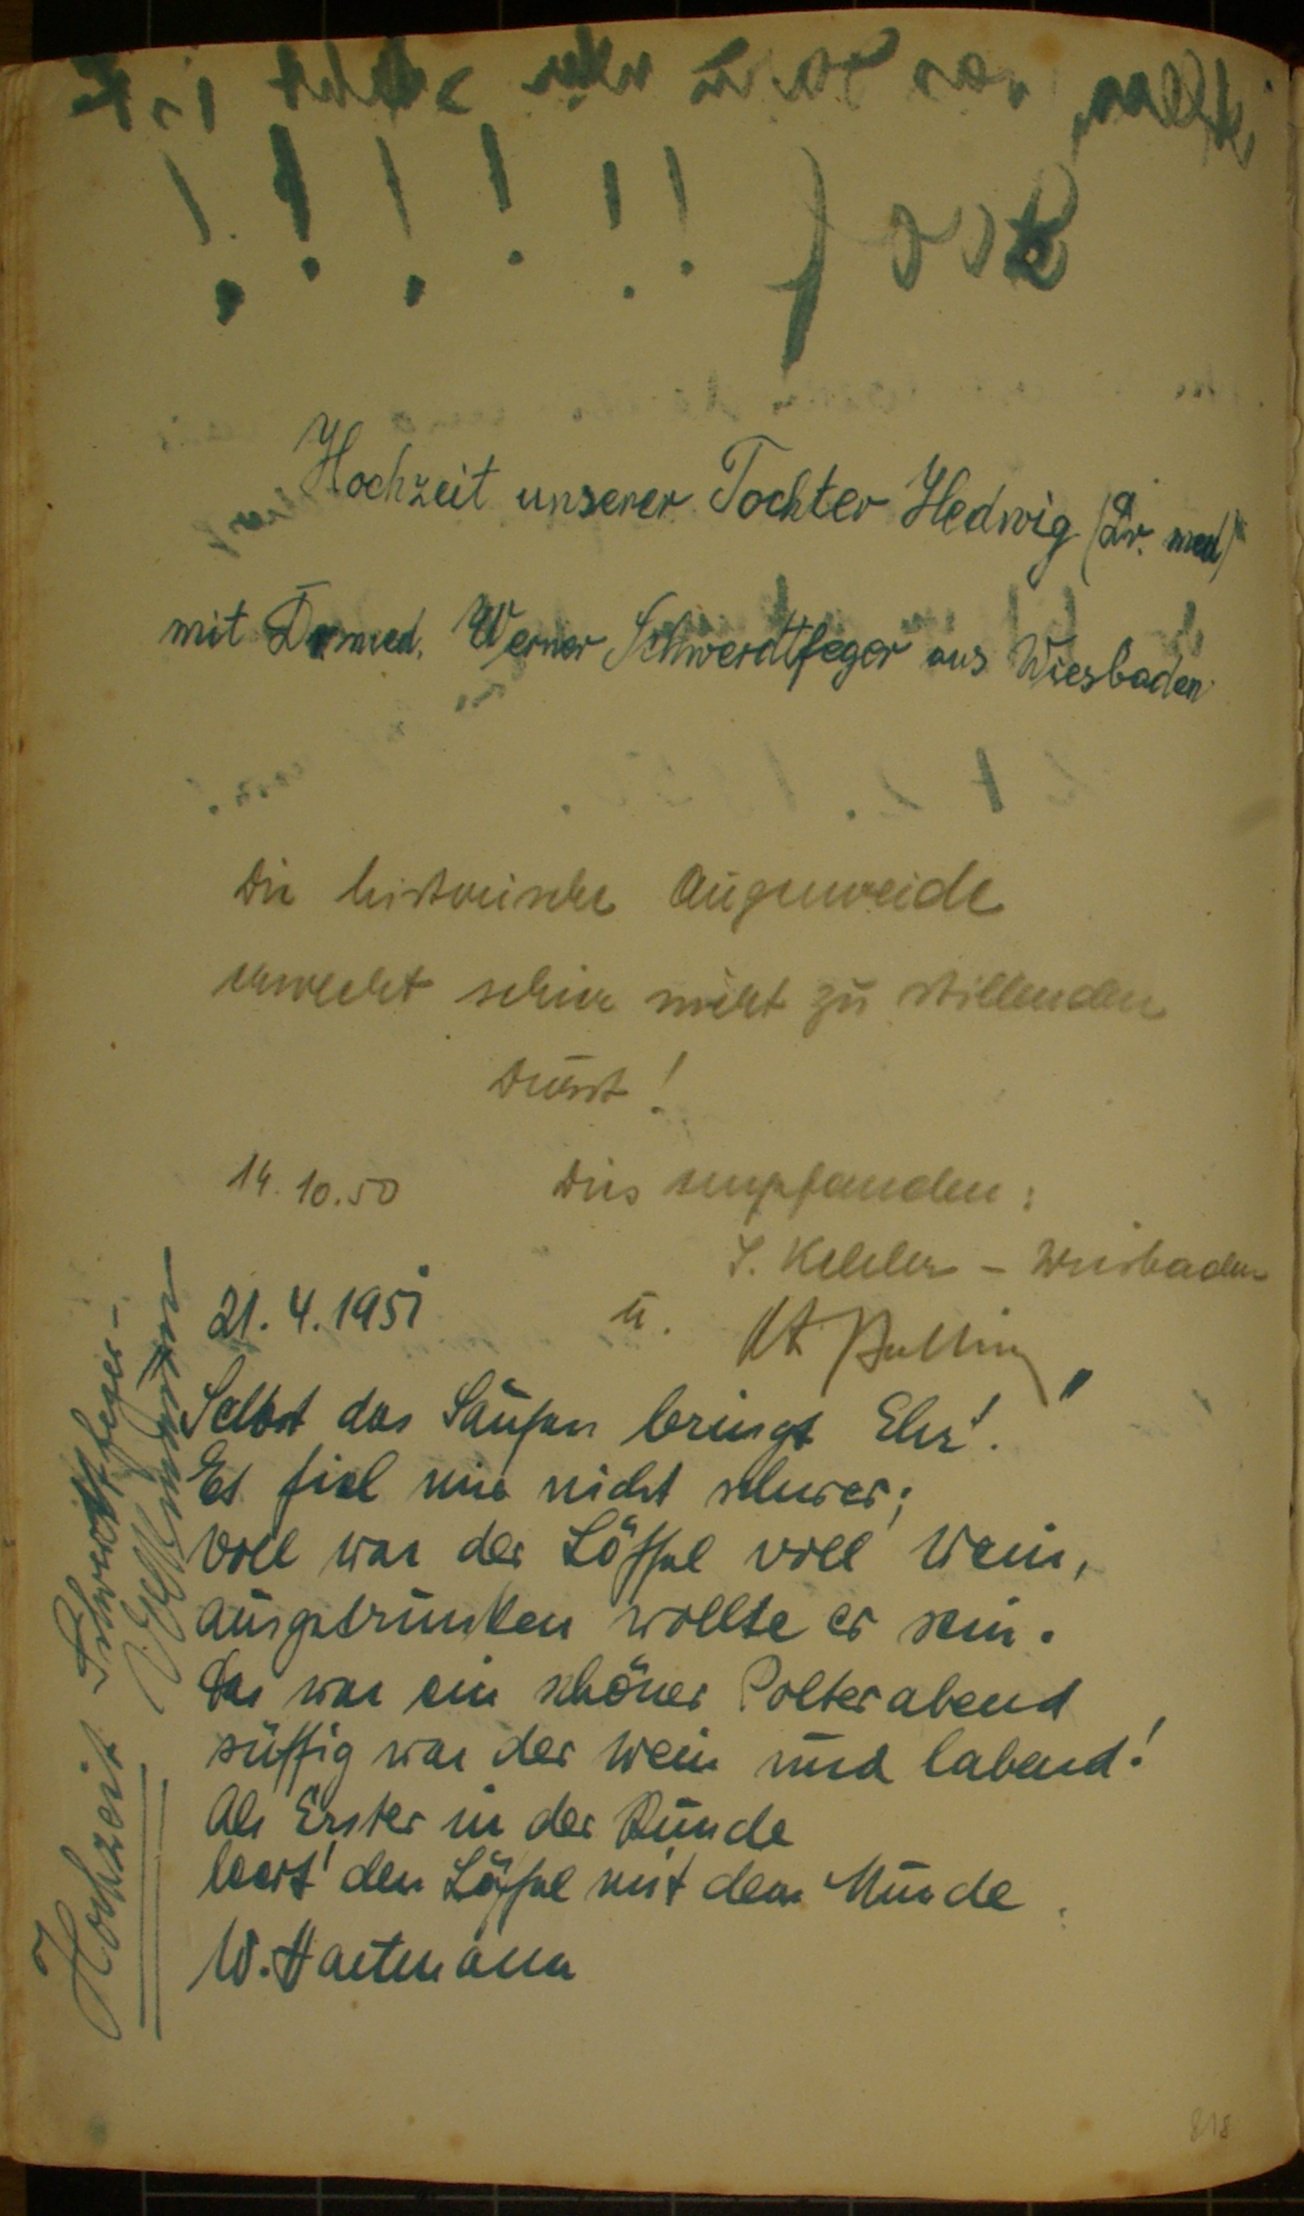 Hochzeit unserer Tochter Hedwig (Dr. med)
mit Dr med. Werner Schwerdtfeger aus Wiesbaden
Die historische Augenweide
erweckt schier nicht zu stillenden
Durst!
14.10.50 Dies empfanden:
Wiesbaden
u.
21.4.1951
Selbst das Saufen bringt Ehr'!
Es fiel mir nicht schwer;
voll war der Löffel voll Wein,
ausgetrunken wollte er sein.
Das war ein schöner Polterabend
süffig war der Wein und labend!
Als Erster in der Runde
leert' den Löffel mit dem Munde
W. Hartmann
Hochzeit Schwerdtfeger-
818